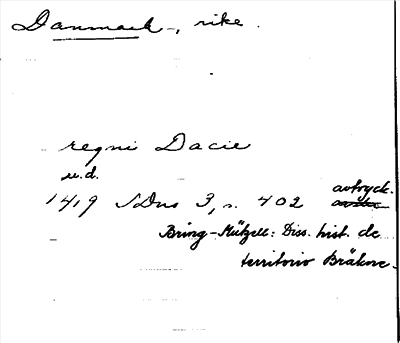 Danmark -, rike.
regni Dacie
u.d.
1419 SDns 3, s. 402 avtryck.
Bring-Mützell: Diss. hist. de
territorio Bräkne-